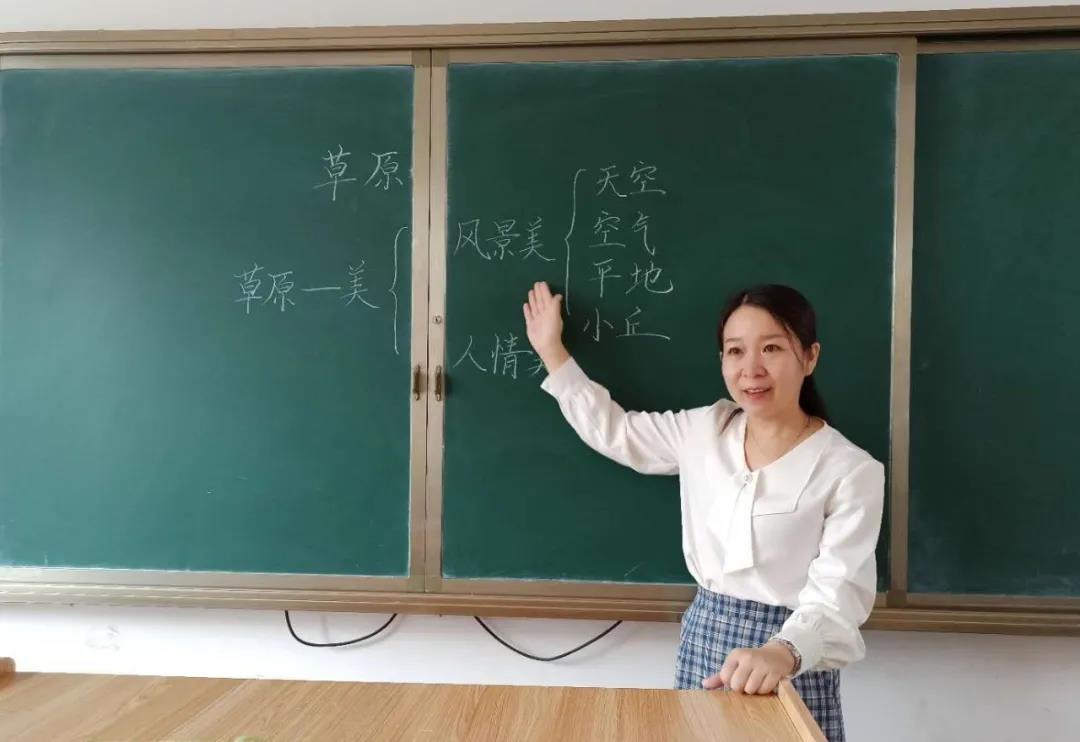 草原
草原—美
风景美
天空
空气
平地
小丘
人情美